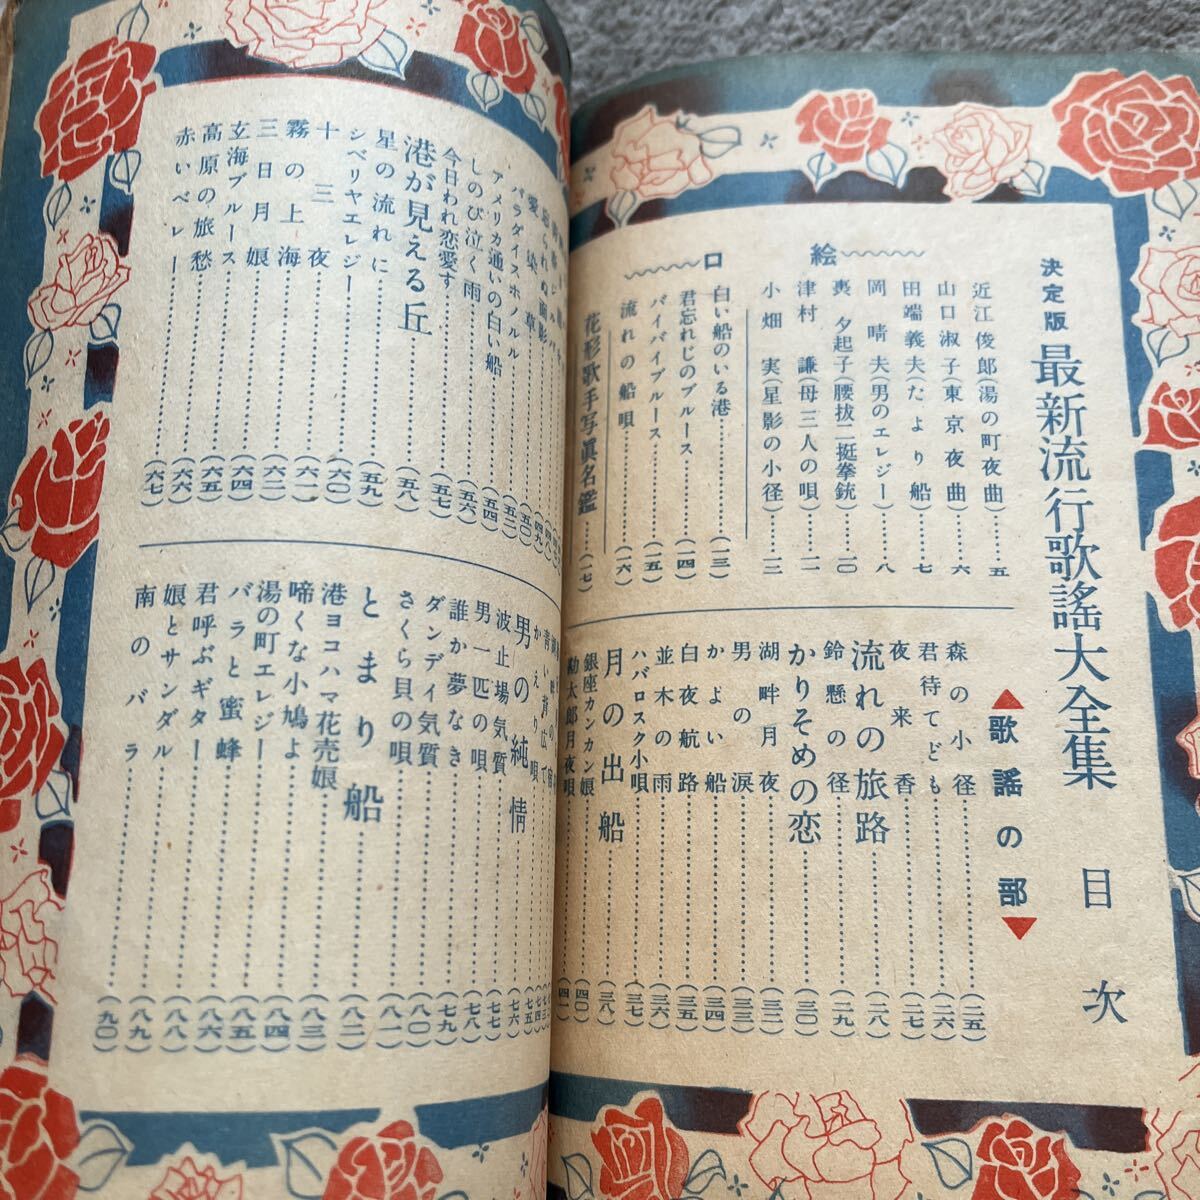 決定版 最新流行歌謠大全集 目次
口絵
近江俊郎(湯の町夜曲)……五
山口淑子(東京夜曲)……六
田端義夫(たより船)……七
岡 晴夫(男のエレジー)……八
奥 夕起子(腰拔二挺拳銃)……一〇
津村 謙(母三人の唄)……一一
小畑 実(星影の小径)……一二
白い船のいる港……(一三)
君忘れじのブルース……(一四)
バイバイブルース……(一五)
流れの船唄……(一六)
花形歌手写眞名鑑……(一七)
▲歌謠の部▼
森の小径……(二五)
君待てども……(二六)
夜来香……(二七)
流れの旅路……(二八)
鈴懸の径……(二九)
かりそめの恋……(三〇)
湖畔月夜……(三二)
男の涙……(三三)
かよい船……(三四)
白夜航路……(三五)
並木の雨……(三六)
ハバロスク小唄……(三七)
月の出船……(三八)
銀座カンカン娘……(四〇)
勘太郎月夜唄……(四一)
愛染草……(五〇)
パラダイスホノルル……(五二)
アメリカ通いの白い船……(五四)
しのび泣く雨……(五六)
今日われ恋愛す……(五七)
港が見える丘……(五八)
星の流れに……(五九)
シベリヤエレジー……(六〇)
十三夜……(六一)
霧の上海……(六二)
三日月娘……(六四)
玄海ブルース……(六五)
高原の旅愁……(六六)
赤いベレー……(六七)
かえり唄……(七五)
男の純情……(七六)
波止場気質……(七七)
男一匹の唄……(七八)
誰か夢なき……(七九)
ダンディ気質……(八〇)
さくら貝の唄……(八一)
とまり船……(八二)
港ヨコハマ花売娘……(八三)
啼くな小鳩よ……(八四)
湯の町エレジー……(八五)
バラと蜜蜂……(八六)
君呼ぶギター……(八八)
娘とサンダル……(八九)
南のバラ……(九〇)